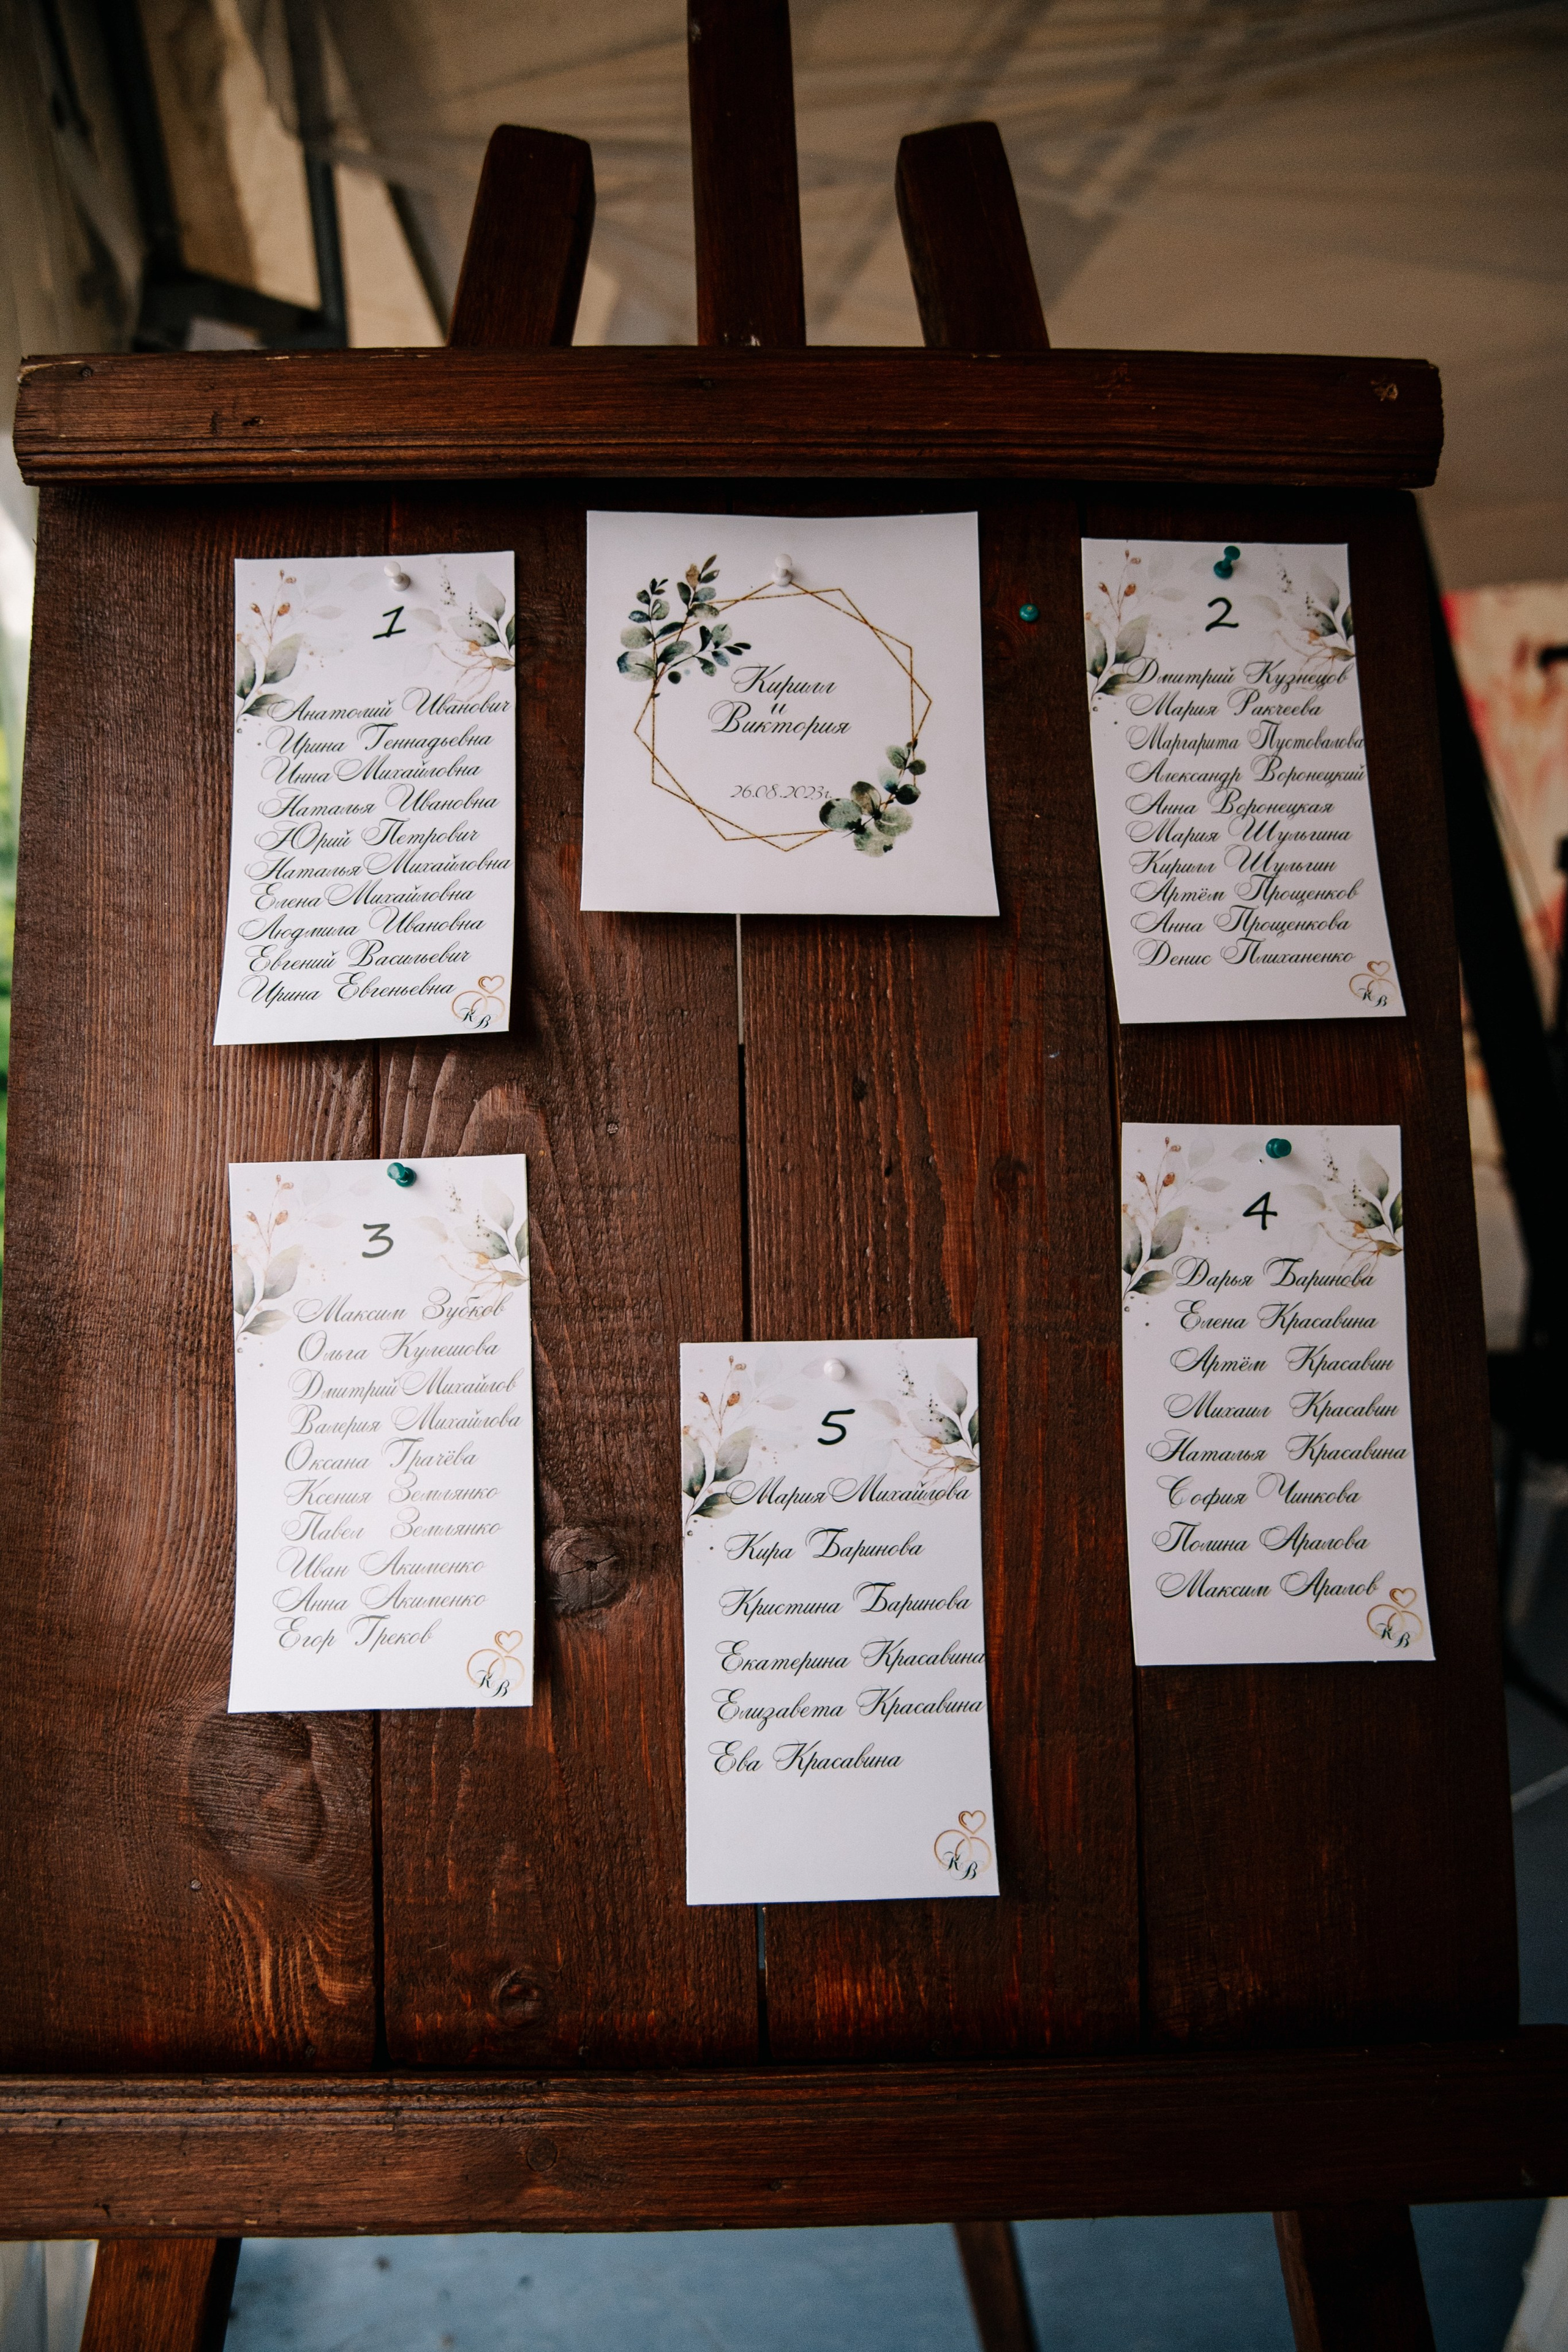 1
Анатолий Иванович
Ирина Геннадьевна
Инна Михайловна
Наталья Ивановна
Юрий Петрович
Наталья Михайловна
Елена Михайловна
Людмила Ивановна
Евгений Васильевич
Ирина Евгеньевна
К В
Кирилл
и
Виктория
26.08.2023г.
2
Дмитрий Кузнецов
Мария Ракчеева
Маргарита Пустовалова
Александр Воронецкий
Анна Воронецкая
Мария Шульгина
Кирилл Шульгин
Артём Прощенков
Анна Прощенкова
Денис Плиханенко
К В
3
Максим Зубков
Ольга Кулешова
Дмитрий Михайлов
Валерия Михайлова
Оксана Грачёва
Ксения Землянко
Павел Землянко
Иван Акименко
Анна Акименко
Егор Греков
К В
4
Дарья Баринова
Елена Красавина
Артём Красавин
Михаил Красавин
Наталья Красавина
София Чинкова
Полина Аралова
Максим Аралов
К В
5
Мария Михайлова
Кира Баринова
Кристина Баринова
Екатерина Красавина
Елизавета Красавина
Ева Красавина
К В